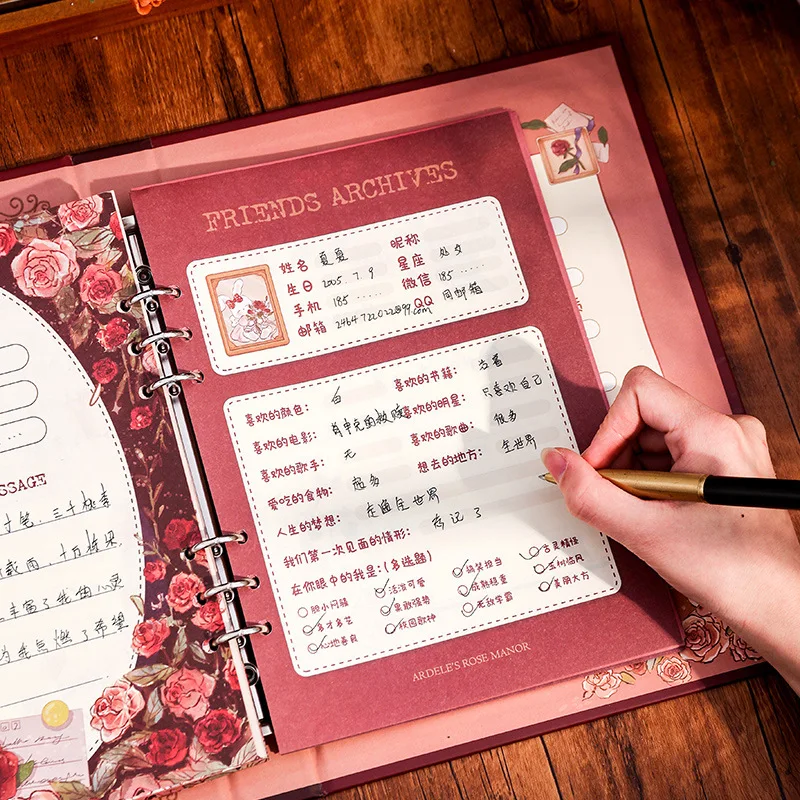 SSAGE
寸笔，三千桃李
载雨，十万栋梁
丰富了我的心灵
为我点燃了希望
FRIENDS ARCHIVES
姓名 夏夏 昵称
生日 2005.7.9 星座 处女
手机 185...... 微信 185......
邮箱 2464722022@99.com QQ 同邮箱
喜欢的颜色： 白 喜欢的书籍： 活着
喜欢的电影： 肖申克的救赎 喜欢的明星： 只喜欢自己
喜欢的歌手： 无 喜欢的歌曲： 很多
爱吃的食物： 超多 想去的地方： 全世界
人生的梦想： 走遍全世界
我们第一次见面的情形： 忘记了
在你眼中的我是：（多选题）
胆小闷骚 活泼可爱 搞笑担当 古灵精怪
多才多艺 果敢强势 成熟稳重 玉树临风
心地善良 校园歌神 无敌学霸 美丽大方
ARDELE'S ROSE MANOR